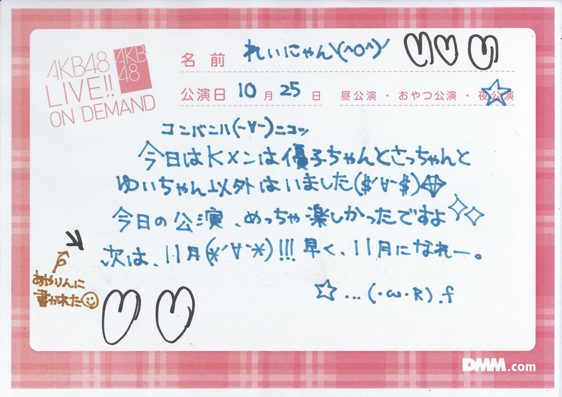 AKB48
LIVE!!
ON DEMAND
AKB
48
名前 れいにゃん\(^O^)/
公演日 10月25日 昼公演・おやつ公演・夜公演
コンバンハ(-∀-)ニコッ
今日はKメンは優子ちゃんとさっちゃんと
ゆいちゃん以外はいました($´∀`$)
今日の公演、めっちゃ楽しかったですよ
次は、11月(*´∀`*)!!!早く、11月になれー。
☆...(・ω・R).f
あかりんに
書かれた
DMM.com